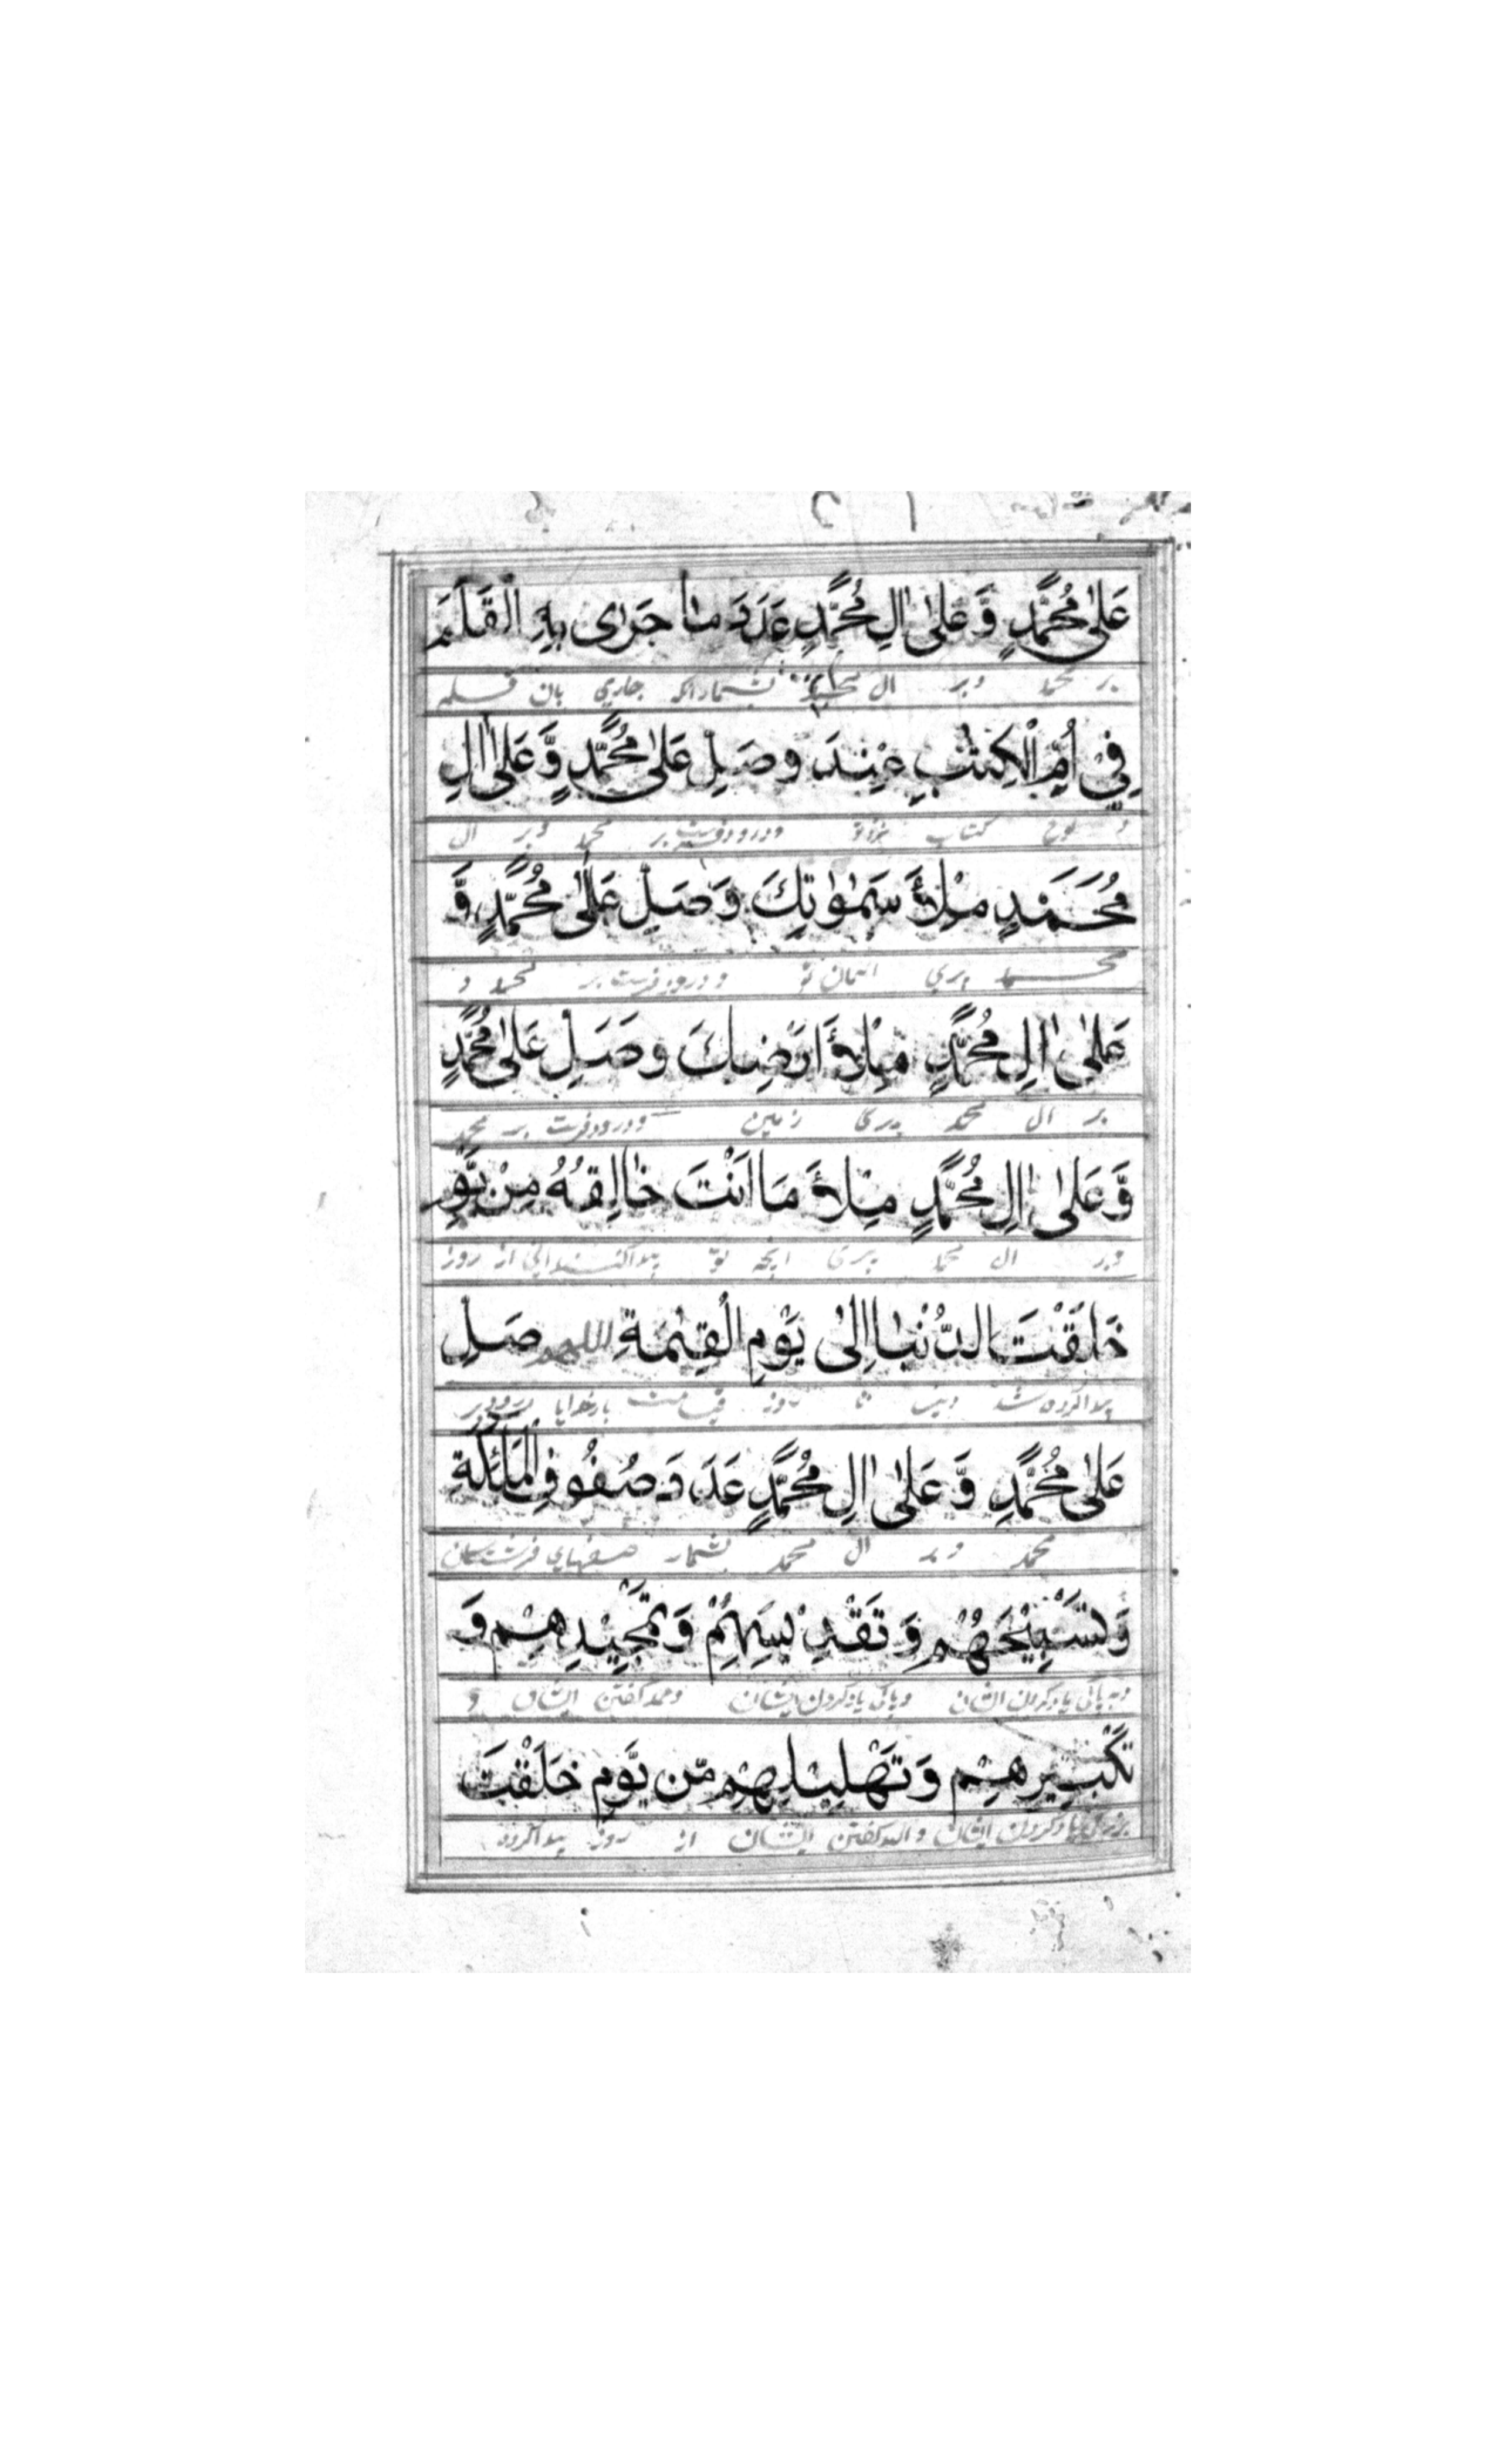 عَلٰى مُحَمَّدٍ وَّ عَلٰى اٰلِ مُحَمَّدٍ عَدَدَ مٰا جَرٰى بِهِ الْقَلَمَ
بر محمد وبر ال محمد بشمار انکه جاري بان قلم
فِيْ اُمِّ الْكِتٰبِ عِنْدَ وصَلِّ عَلٰى مُحَمَّدٍ وَّ عَلٰى اٰلِ
لوح كتاب نزد تو ودرود فرست بر محمد وبر ال
مُحَمَّدٍ مِلْأَ سَمٰوٰتِكَ وَصَلِّ عَلٰى مُحَمَّدٍ وَّ
محمد پري اسمان تو ودرود فرست بر محمد و
عَلٰى اٰلِ مُحَمَّدٍ مِلْأَ اَرْضِكَ وصَلِّ عَلٰى مُحَمَّدٍ
بر ال محمد پرى زمين ودرود فرست بر محمد
وَّ عَلٰى اٰلِ مُحَمَّدٍ مِلْأَ مَا اَنْتَ خٰالِقُهُ مِنْ يَّوْمِ
وبر ال محمد پرى انچه تو پيدا كننده اني از روز
خَلَقْتَ الدُّنْيٰا اِلٰى يَوْمِ الْقِيٰمَةِ اللهم صَلِّ
پيدا كرده شد دنيا تا روز قيامت بار خدايا درود بر
عَلٰى مُحَمَّدٍ وَّ عَلٰى اٰلِ مُحَمَّدٍ عَدَدَ صُفُوفِ الْمَلٰٓئِكَةِ
محمد وبر ال محمد بشمار صفهاي فرشتگان
وَ تَسْبِيْحِهُمْ وَ تَقْدِيْسِهِمْ وَ تَمْجِيْدِهِمْ وَ
وبه پاكي ياد كردن ايشان وپاك ياد كردن ايشان وحمد كفتن ايشان و
تَكْبِيْرِهِمْ وَ تَهْلِيْلِهِمْ مِّن يَّوْمِ خَلَقْتَ
ياد كردن ايشان كفتن ايشان از روز پيدا كرده